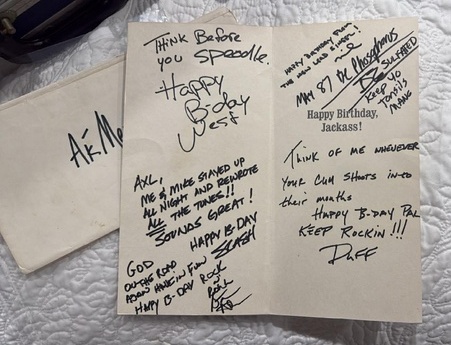 AK Me
THINK BEFORE
you Spoodle.
Happy
B-day
West
AXL,
ME & MIKE STAYED UP
ALL NIGHT AND REWROTE
ALL THE TUNES!!
SOUNDS GREAT!
HAPPY B-DAY
SLASH
GOD
ON THE ROAD
HAVE FUN
HAPPY B-DAY ROCK
HAPPY BIRTHDAY FROM
THE NEW LEAD SINGER!
MAY 87 the Phosphorus
KEEP YO
TONSILS
Happy Birthday,
Jackass!
THINK OF ME WHENEVER
YOUR CUM SHOOTS IN-TO
their mouths
HAPPY B-DAY PAL
KEEP ROCKIN !!!
DUFF